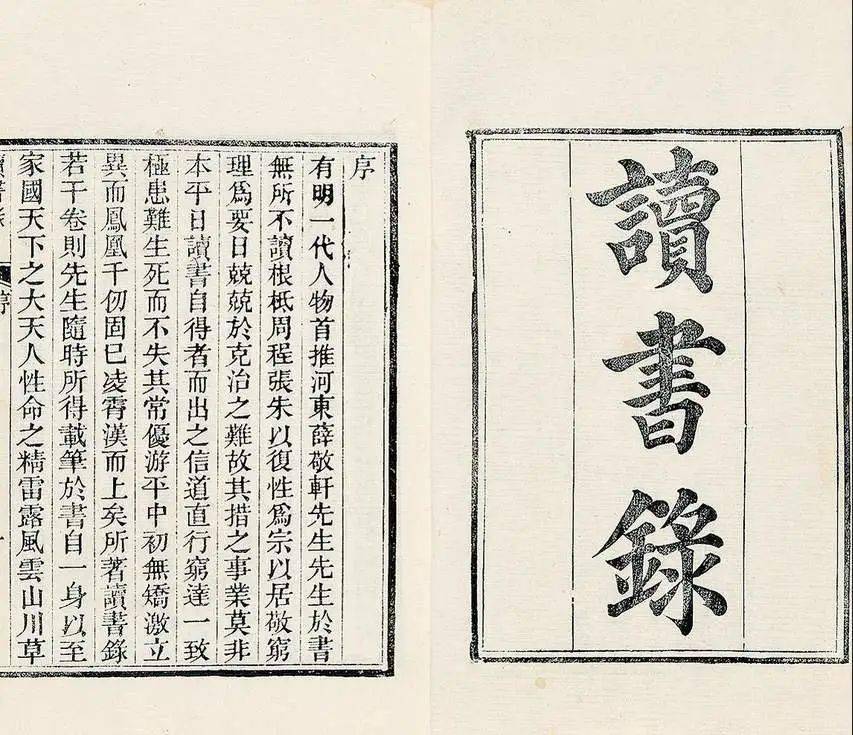 讀書錄
序
有明一代人物首推河東薛敬軒先生先生於書
無所不讀根柢周程張朱以復性爲宗以居敬窮
理爲要日兢兢於克治之難故其措之事業莫非
本平日讀書自得者而出之信道直行窮達一致
極患難生死而不失其常優游平中初無矯激立
異而鳳凰千仞固已凌霄漢而上矣所著讀書錄
若干卷則先生隨時所得載筆於書自一身以至
家國天下之大天人性命之精雷露風雲山川草
序